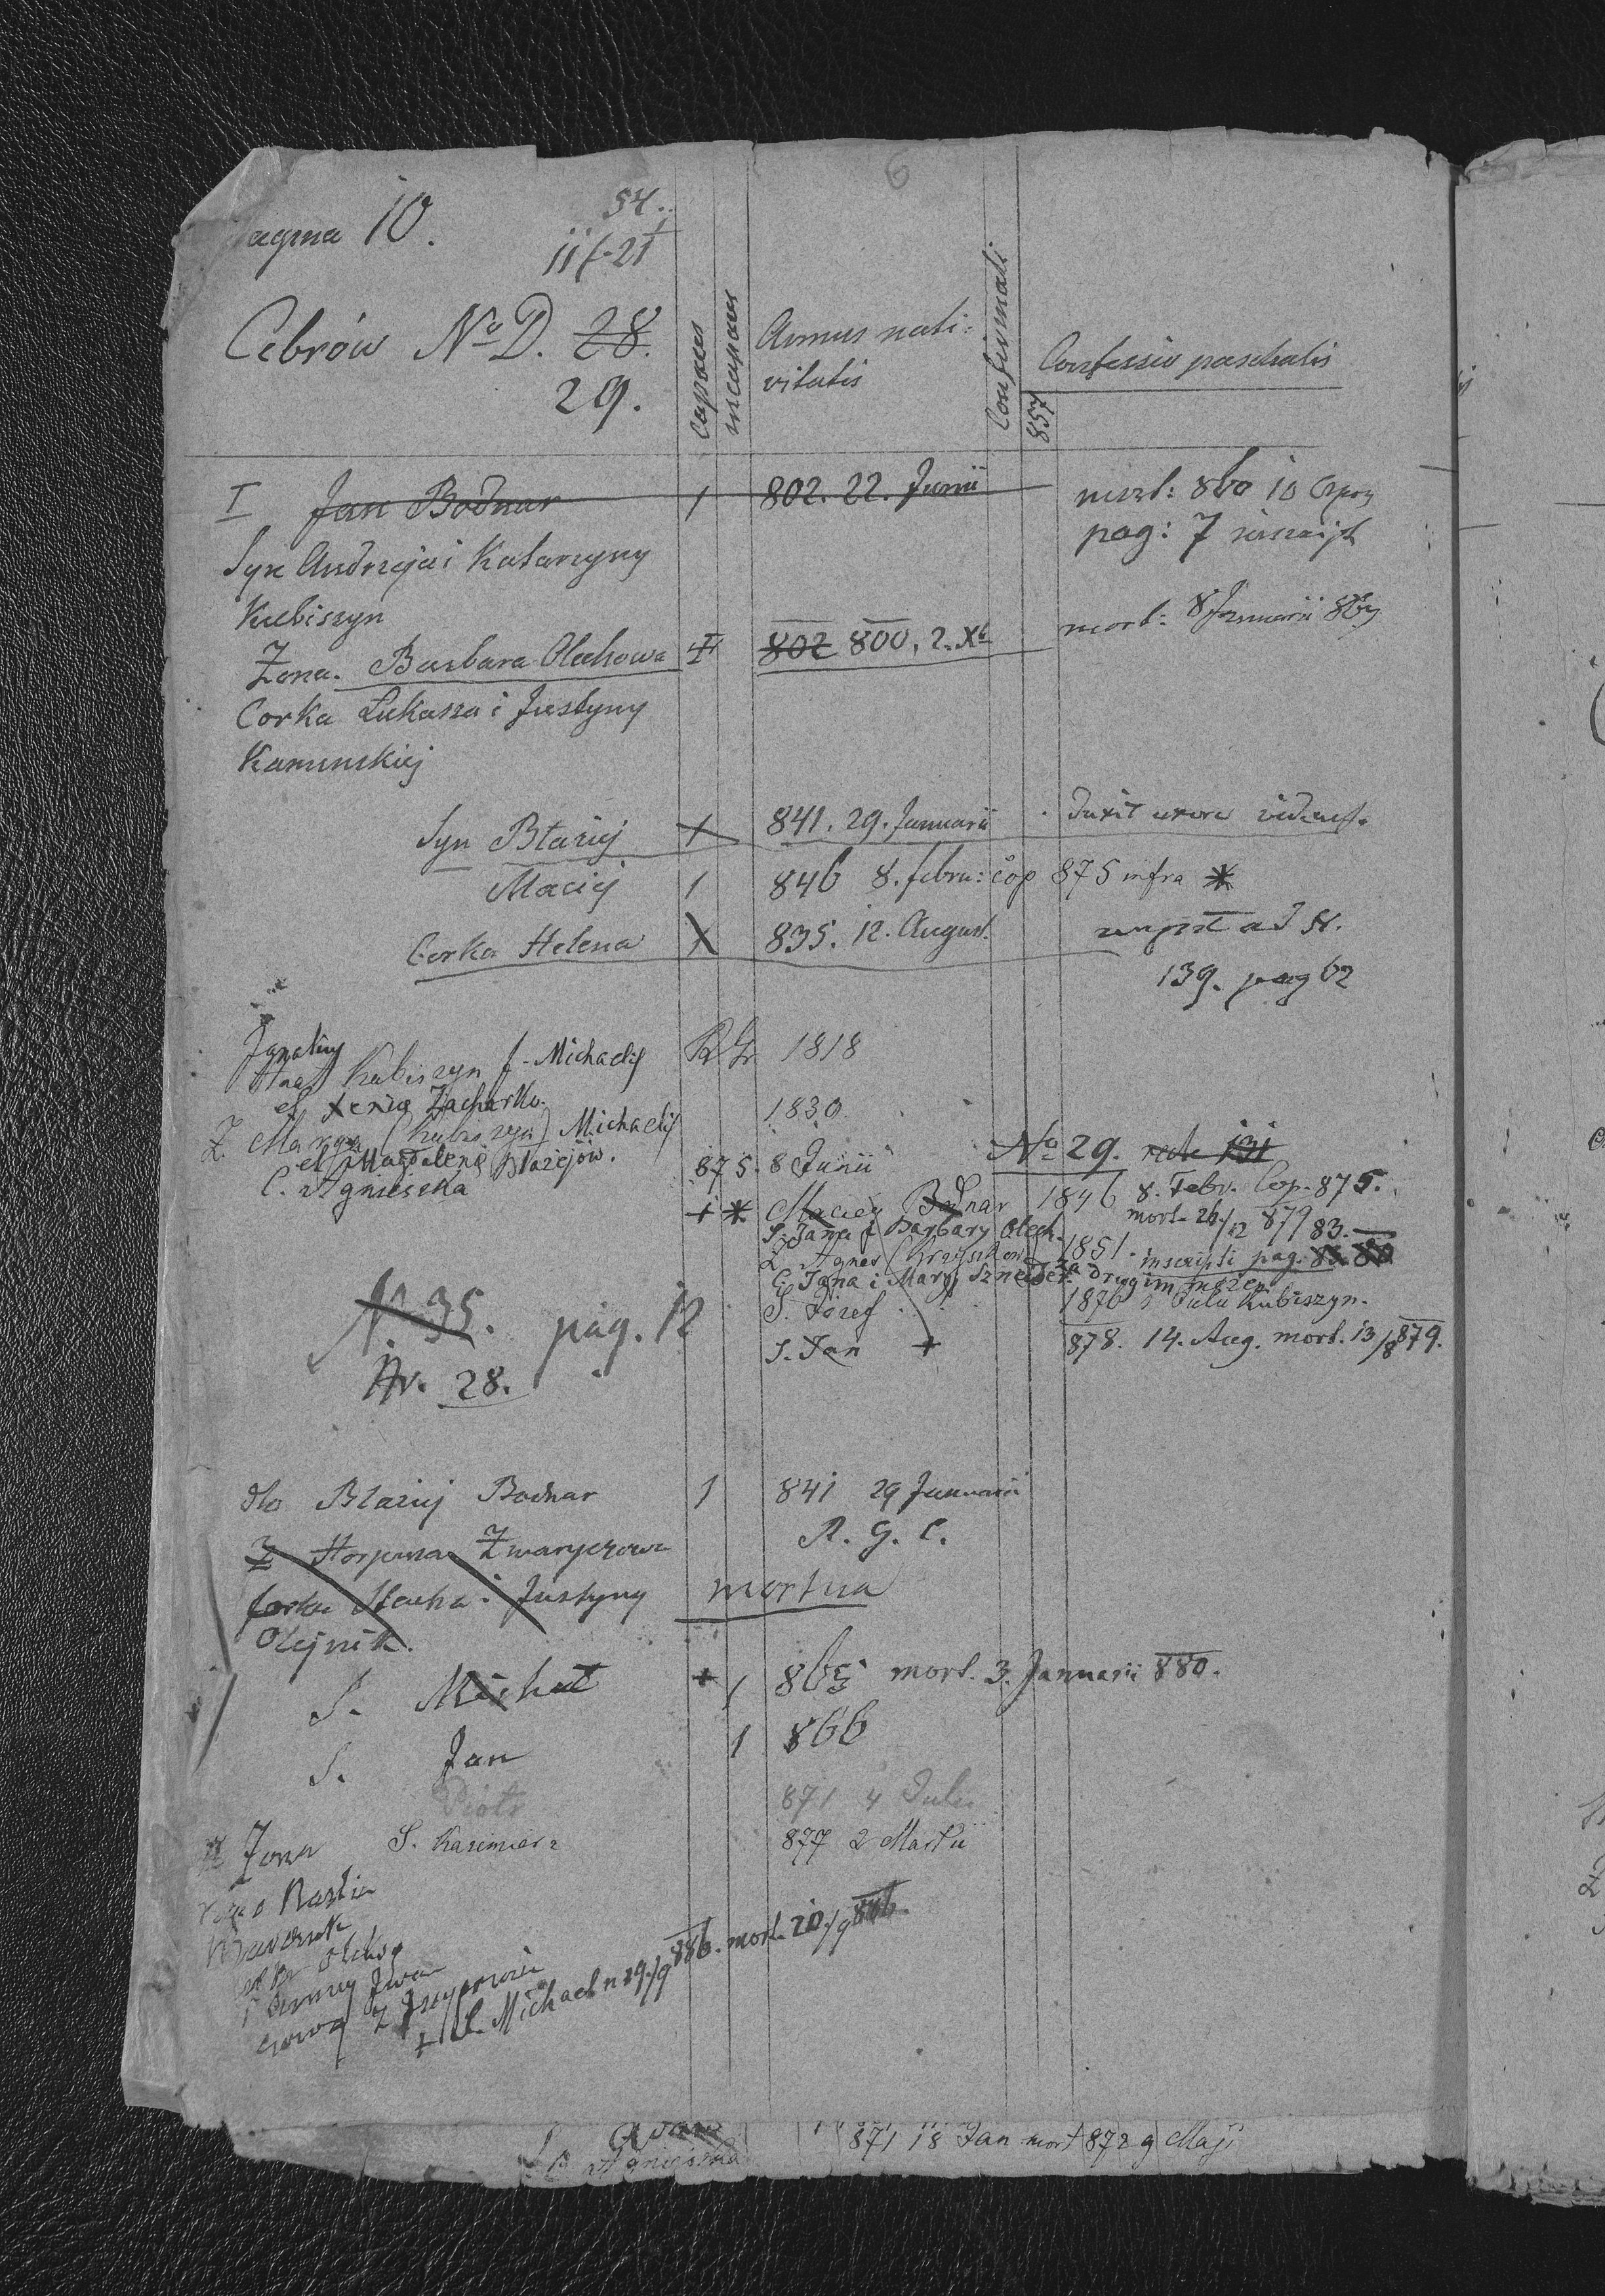 6
Pagina 10.
54.
Cebrów No D. 28.
29.
Capaces
incapaces
Annus nati=
vitatis
Confirmati
Confessio paschalis
857
I Jan Bodnar 1 802. 22. Junii mort: 860 10
pag: 7
Syn Andrzeja i Katarzyny
Kubiszyn
Żona. Barbara Olechowa 802 800. 2. Xb mort: 8 Januarii 867
Corka Łukasza i Justyny
Kaminskiej
Syn Błażej 1 841. 29. Januarii duxit uxore
Maciej 1 846 8. febru: cop 875 infra *
Corka Helena 1 835. 12. August. nupsit ad N.
139. pag 62
Ignatius
Kubiszyn f. Michaelis R Gr 1818
et Xenia Zacharko.
Ż. Maryna (Kubiszyn) Michaelis 1830.
et Magdalena Błażejów.
C. Agnieszka 875. 8 Junii
No 29. recte 131
+ * Maciej Bodnar 1846 8. Febr. Cop. 875.
mort. 20/12 879 83.
S. Jana i Barbary Olech.
Ż. Agnes 1851. inscripti pag. 83 80
C. Jana i Maryi Sznejder. za drugim mężem
S. Józef 1876 Kubiszyn.
S. Jan + 878. 14. Aug. mort. 13/8 879.
N. 35. pag. 12
Nr. 28.
dto Błażej Bodnar 1 841 29 Januarii
Ż Horpyna Zwaryczowa R. G. C.
corka Stacha i Justyny mortua
Olejnik.
S. Michał + 1 865 mort. 3. Januarii 880.
S. Jan 1 866
Piotr 871 4 Julii
Żona S. Kazimierz 877 2 Martii
Nastia
+ S. Michael n 19/9 886. mort. 20/9 886.
871 18 Jan mort 872 9 Maji
Agnieszka